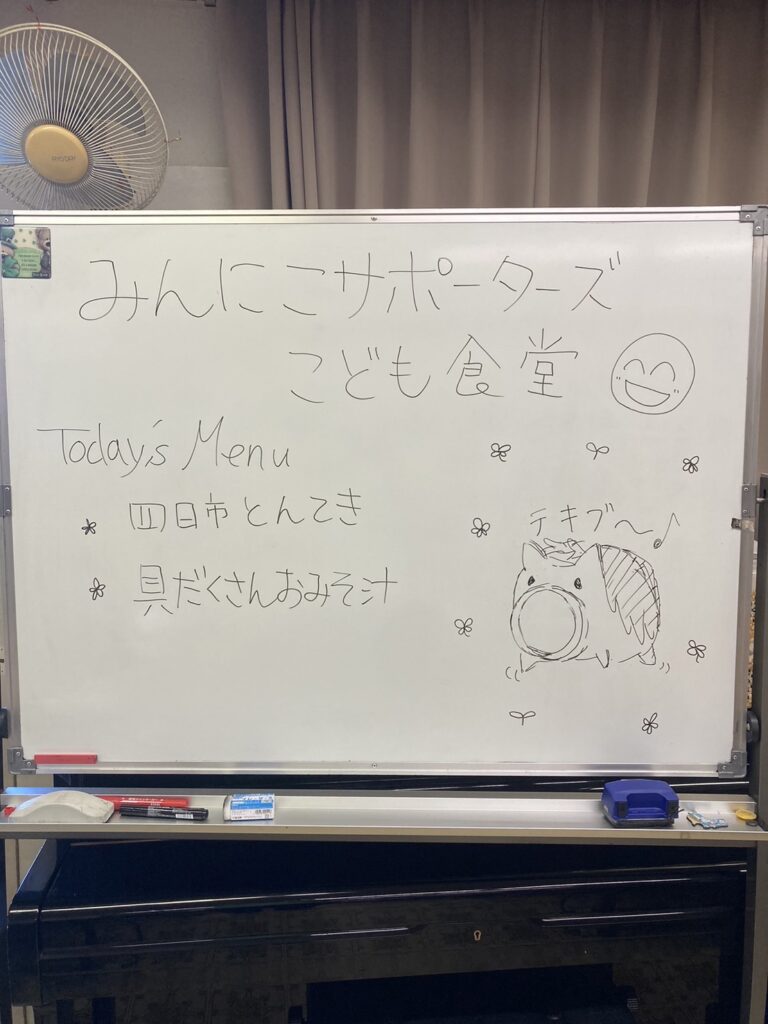 みんにこサポーターズ
こども食堂
Today's Menu
四日市とんてき
具だくさんおみそ汁
テキブ～♪